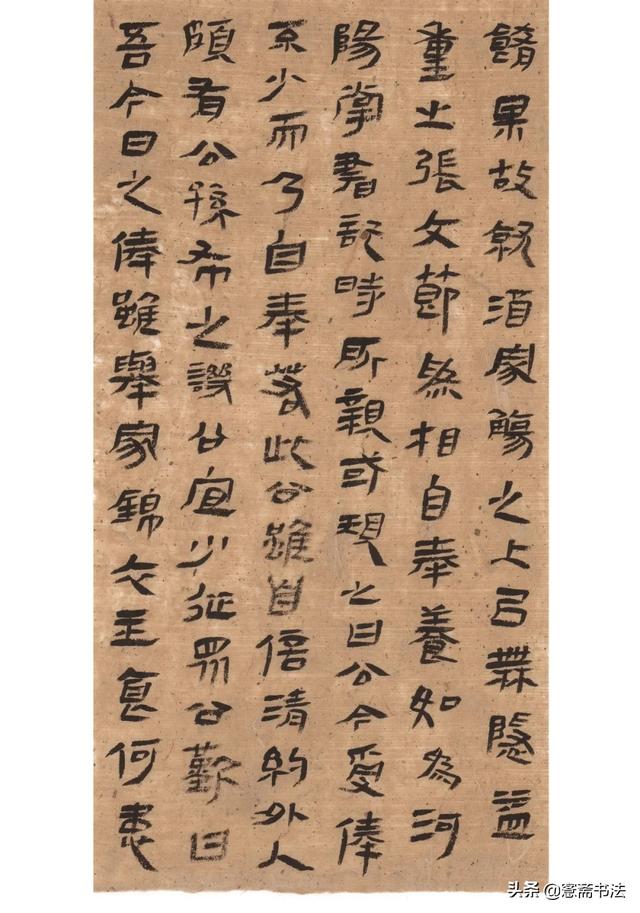 餚果故就酒家觴之上以無隱益
重之張文節為相自奉養如為河
陽掌書記時所親或規之曰公今受俸
不少而乃自奉若此公雖自信清約外人
頗有公孫布之譏公宜少從眾公歎曰
吾今日之俸雖舉家錦衣玉食何患
头条 @愙斋书法